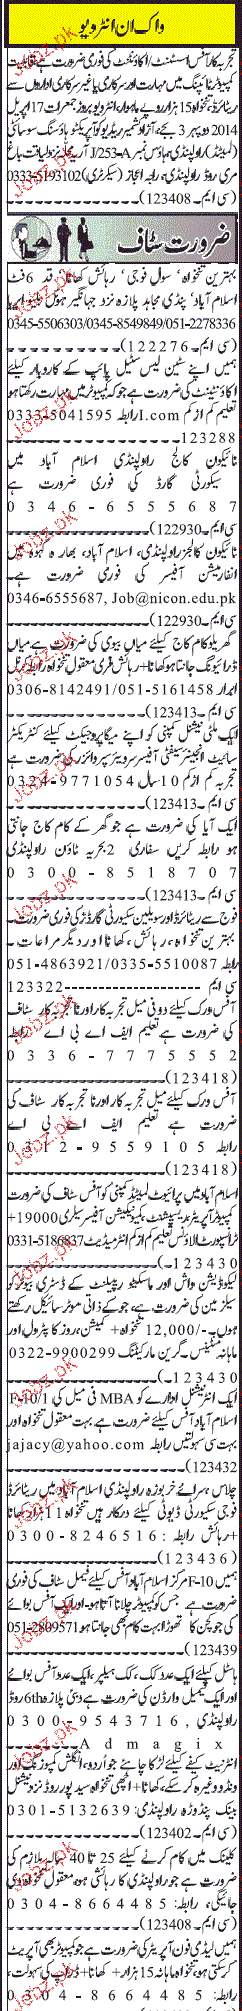 واک ان انٹرویو
تجربہ کار آفس اسسٹنٹ / اکاؤنٹنٹ کی فوری ضرورت ہے قابلیت
کمپیوٹر ٹائپنگ میں مہارت اور سرکاری یا غیر سرکاری اداروں سے
ریٹائرڈ، تنخواہ 15 ہزار روپے ماہوار، انٹرویو بروز جمعرات 17 اپریل
2014 دوپہر 3 بجے، آزاد کشمیر ریڈیو کوآپریٹو ہاؤسنگ سوسائٹی
(لمیٹڈ) راولپنڈی، ہاؤس نمبر J/253-A نزد لیاقت باغ
مری روڈ راولپنڈی، راجہ اعجاز (سیکرٹری) 0333-5193102
(سی ایم۔123408)
ضرورت سٹاف
بہترین تنخواہ، سول فوجی، رہائش کھانا، قد 6 فٹ
اسلام آباد، پنڈی مجاہد پلازہ نزد جہانگیر ہوٹل بلیو ایریا
0345-5506303/0345-8549849/051-2278336
(سی ایم۔122276)
ہمیں اپنے سٹین لیس سٹیل پائپ کے کاروبار کیلئے
اکاؤنٹینٹ کی ضرورت ہے جو کہ کمپیوٹر میں مہارت رکھتا ہو
تعلیم کم از کم I.com رابطہ 0333-5041595
123288
نائیکون کالج راولپنڈی اسلام آباد میں
سیکورٹی گارڈ کی فوری ضرورت ہے
0346-6555687
(سی ایم۔122930)
نائیکون کالجز راولپنڈی، اسلام آباد، بھارہ کہوہ میں
انفارمیشن آفیسر کی فوری ضرورت ہے۔
0346-6555687, Job@nicon.edu.pk
(سی ایم۔122930)
گھریلو کام کاج کیلئے میاں بیوی کی ضرورت ہے میاں
ڈرائیونگ جانتا ہو کھانا + رہائش فری معقول تنخواہ رابطہ کرنل
ابرار 0306-8142491/051-5161458
(سی ایم۔123413)
ایک ملٹی نیشنل کمپنی کو اپنے میگا پروجیکٹ کیلئے کنٹریکٹر
سائیٹ انجینئر سیفٹی آفیسر سروئیر سپروائزر کی ضرورت ہے
تجربہ کم از کم 10 سال 0324-9771054
(سی ایم۔123413)
ایک آیا کی ضرورت ہے جو گھر کے کام کاج جانتی
ہو رابطہ کریں سفاری 2 بحریہ ٹاؤن راولپنڈی
0300-8518707
(سی ایم۔123413)
فوج سے ریٹائرڈ اور سویلین سیکورٹی گارڈز کی فوری ضرورت۔
بہترین تنخواہ، رہائش، کھانا اور دیگر مراعات۔
رابطہ 051-4863921/0335-5510087
سی ایم 123322
آفس ورک کیلئے دو فی میل تجربہ کار اور نا تجربہ کار سٹاف
کی ضرورت ہے تعلیم ایف اے بی اے رابطہ
0336-7775552
(123418)
آفس ورک کیلئے میل تجربہ کار اور نا تجربہ کار سٹاف کی
ضرورت ہے تعلیم ایف اے بی اے
رابطہ 0312-9559105
(123418)
اسلام آباد میں پرائیویٹ لمیٹڈ کمپنی کو آفس سٹاف کی ضرورت
کمپیوٹر آپریٹر ریسپشنسٹ کمیونیکیشن آفیسر سیلری 19000+
ٹرانسپورٹ الاؤنس تعلیم کم از کم انٹرمیڈیٹ 0331-5186837
(123430)
لیکوڈیشن واش اور ماسکیٹو ریپیلنٹ کے ڈسٹری بیوٹر کو
سیلز مین کی ضرورت ہے، جو کے ذاتی موٹر سائیکل رکھتے
ہوں۔ 12,000/- تنخواہ + کمیشن، روز کا پٹرول اور
ماہانہ مینٹیننس۔ گرین مارکیٹنگ 0322-9900299
(123430)
ایک انٹرنیشنل ادارے کو MBA فی میل کی F-10/1
اسلام آباد آفس کیلئے ضرورت ہے بہت معقول تنخواہ اور
بہت سی سہولتیں رابطہ jajacy@yahoo.com
(123432)
چلاس سرائے خربوزہ راولپنڈی اسلام آباد میں ریٹائرڈ
فوجی سیکورٹی ڈیوٹی کیلئے درکار ہیں تنخواہ 11 ہزار کھانا
+ رہائش رابطہ: 0300-8246516
(123436)
ہمیں F-10 مرکز اسلام آباد آفس کیلئے فیمیل سٹاف کی فوری
ضرورت ہے جس کو کمپیوٹر چلانا آتا ہو۔ اور ایک آفس بوائے
کی جو کچن کا تھوڑا بہت کام بھی جانتا ہو 051-2809571
(123439)
ہاسٹل کیلئے ایک عدد کک، کک ہیلپر، ایک عدد آفس بوائے
اور ایک فیمیل وارڈن کی ضرورت ہے دبئی پلازہ 6th روڈ
راولپنڈی، 0300-9543716
Admagix
انٹرنیٹ کیفے کیلئے لڑکا چاہئے جو اُردو، انگلش کمپوزنگ اور
ونڈو وغیرہ کر سکے، کھانا + اچھی تنخواہ سید پور روڈ نزد نیشنل
بینک پنڈوڑہ راولپنڈی: 0301-5132639
(سی ایم۔123402)
کلینک میں کام کرنے کیلئے 25 تا 40 سالہ ملازم کی
ضرورت ہے جو راولپنڈی کا رہائشی ہو، معقول تنخواہ دی
جائیگی، رابطہ: 0304-8664485
(سی ایم۔123408)
ہمیں لیڈی فون آپریٹر کی ضرورت ہے جو کمپیوٹر بھی آپریٹ
کر سکتی ہو، تنخواہ ماہانہ 15 ہزار + کھانا + ڈراپ کی سہولت،
رابطہ: 0304-8664485